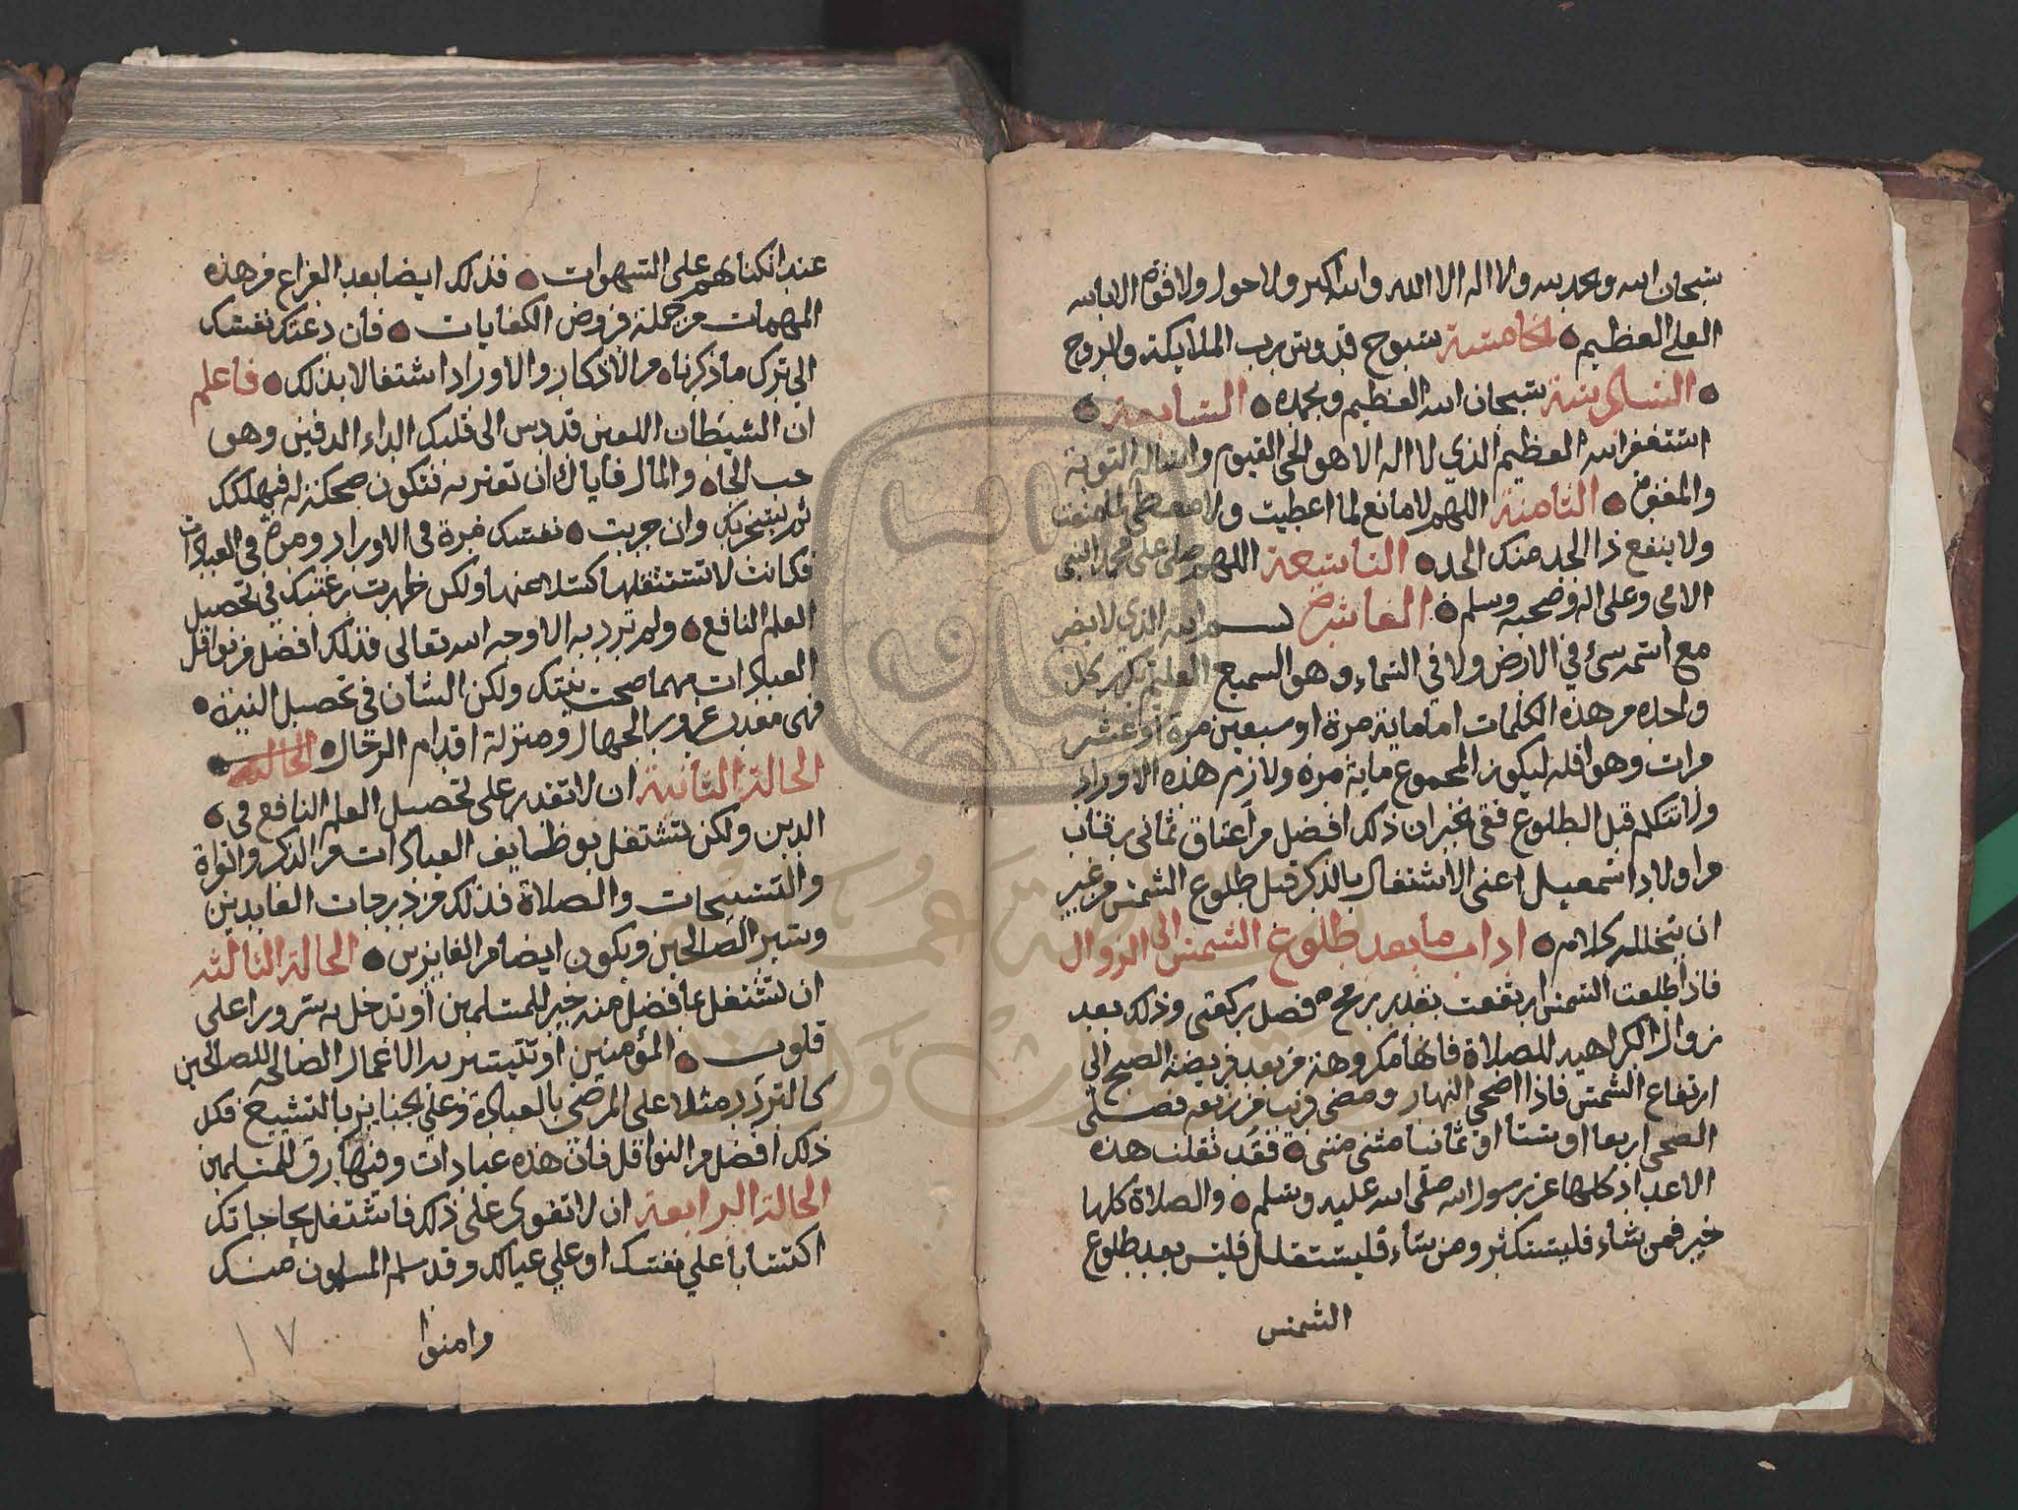 سبحان الله والحمد لله ولا اله الا الله والله اكبر ولا حول ولا قوة الا بالله
العلي العظيم الخامسة سبوح قدوس رب الملايكة والروح
السادسة سبحان الله العظيم وبحمده السابعة
استغفر الله العظيم الذي لا اله الا هو الحي القيوم واسأله التوبة
والمغفرة الثامنة اللهم لا مانع لما اعطيت ولا معطي لما منعت
ولا ينفع ذا الجد منك الجد التاسعة اللهم صلي على محمد النبي
الامي وعلى اله وصحبه وسلم العاشرة بسم الله الذي لا يضر
مع اسمه شيء في الارض ولا في السماء وهو السميع العليم تكرر كل
واحدة من هذه الكلمات اما ماية مرة او سبعين مرة او عشر
مرات وهو اقله ليكون المجموع ماية مرة ولازم هذه الاوراد
ولا تتكلم قبل الطلوع ففي الخبر ان ذلك افضل من اعتاق ثماني رقاب
من اولاد اسمعيل اعني الاشتغال بالذكر قبل طلوع الشمس من غير
ان يتخلله كلام اداب ما بعد طلوع الشمس الى الزوال
فاذا طلعت الشمس ارتفعت بقدر رمح فصل ركعتي وذلك بعد
زوال الكراهية للصلاة فانها مكروهة من بعد فريضة الصبح الى
ارتفاع الشمس فاذا اضحى النهار ومضى قريب من ربعه فصلي
الضحى اربعا او ستا او ثمانيا مثنى مثنى فقد نقلت هذه
الاعداد كلها عن رسول الله صلى الله عليه وسلم والصلاة كلها
خير فمن شاء فليستكثر ومن شاء فليستقلل فليس بعد طلوع
الشمس
عند انكبابهم على الشهوات فذلك ايضا بعد الفراغ من هذه
المهمات من جملة فروض الكفايات فان دعتك نفسك
الى ترك ما ذكرناه من الاذكار والاوراد اشتغالا بذلك فاعلم
ان الشيطان اللعين قد دس الى قلبك الداء الدفين وهو
حب الجاه والمال فاياك ان تغتر به فتكون ضحكة له فيهلكك
ثم يسخر بك وان جربت نفسك مرة في الاوراد ومرة في العبادات
فكانت لا تستثقلها كسلا عنها ولكن ظهرت رغبتك في تحصيل
العلم النافع ولم ترد به الا وجه الله تعالى فذلك افضل من نوافل
العبادات مهما صحت نيتك ولكن الشان في تحصيل النية
فهي معدن غرور الجهال ومنزلة اقدام الرجال الحالة
الحالة الثانية ان لا تقدر على تحصيل العلم النافع في
الدين ولكن تشتغل بوظايف العبادات من الذكر والقراة
والتسبيحات والصلاة فذلك من درجات العابدين
وسير الصالحين ويكون ايضا من الفايزين الحالة الثالثة
ان تشتغل بما فضل منه خير للمسلمين او تدخل به سرورا على
قلوب المؤمنين او تتيسر به الاعمال الصالحة للصالحين
كالتردد مثلا على المرضى بالعيادة وعلى الجنايز بالتشييع فكل
ذلك افضل من النوافل فان هذه عبادات وفيها رفق للمسلمين
الحالة الرابعة ان لا تقوى على ذلك فاشتغل بحاجاتك
اكتسابا على نفسك او على عيالك وقد سلم المسلمون منك
وامنوا
١٧